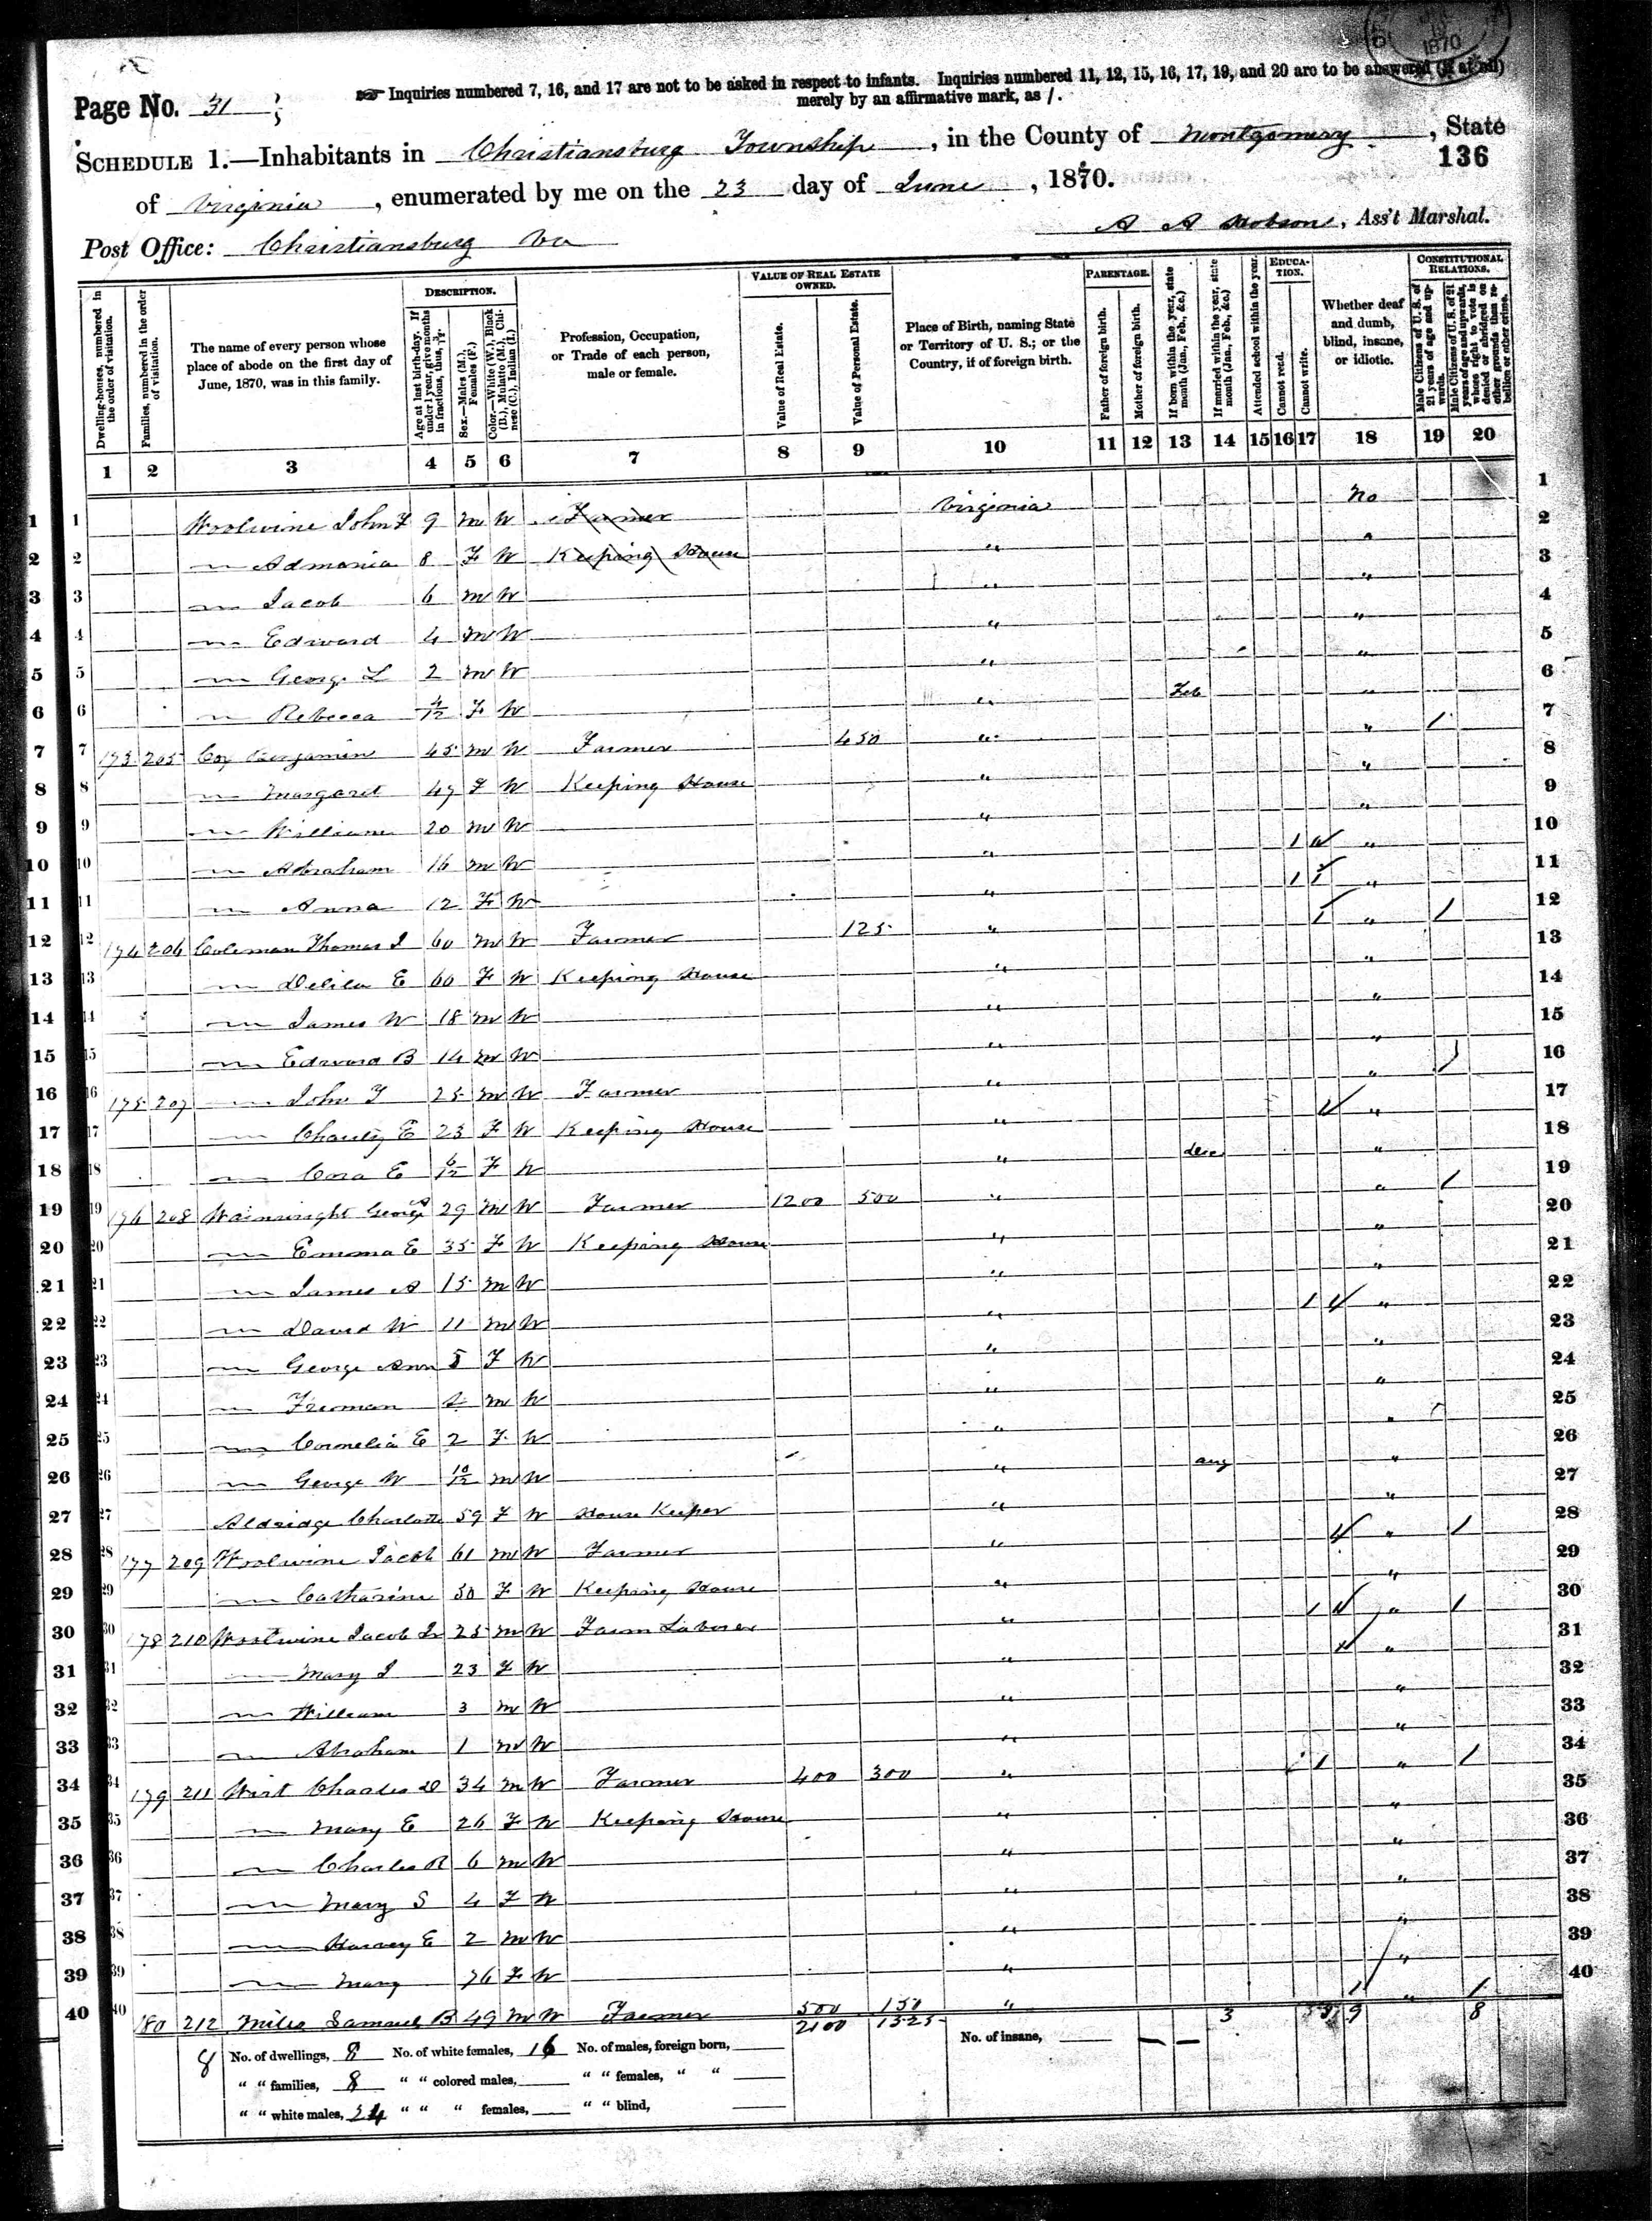 1870
Inquiries numbered 7, 16, and 17 are not to be asked in respect to infants. Inquiries numbered 11, 12, 15, 16, 17, 19, and 20 are to be answered (if at all)
merely by an affirmative mark, as /.
Page No. 31
SCHEDULE 1.—Inhabitants in Christiansburg Township, in the County of Montgomery, State
136
of Virginia, enumerated by me on the 23 day of June, 1870.
A A Hobson, Ass't Marshal.
Post Office: Christiansburg Va
Dwelling-houses, numbered in the order of visitation.
Families, numbered in the order of visitation.
The name of every person whose place of abode on the first day of June, 1870, was in this family.
DESCRIPTION.
Age at last birth-day. If under 1 year, give months in fractions, thus, 3/12.
Sex.—Males (M.), Females (F.)
Color.—White (W.), Black (B.), Mulatto (M.), Chinese (C.), Indian (I.)
Profession, Occupation, or Trade of each person, male or female.
VALUE OF REAL ESTATE OWNED.
Value of Real Estate.
Value of Personal Estate.
Place of Birth, naming State or Territory of U. S.; or the Country, if of foreign birth.
PARENTAGE.
Father of foreign birth.
Mother of foreign birth.
If born within the year, state month (Jan., Feb., &c.)
If married within the year, state month (Jan., Feb., &c.)
Attended school within the year.
EDUCATION.
Cannot read.
Cannot write.
Whether deaf and dumb, blind, insane, or idiotic.
CONSTITUTIONAL RELATIONS.
Male Citizens of U. S. of 21 years of age and upwards.
Male Citizens of U. S. of 21 years of age and upwards, whose right to vote is denied or abridged on other grounds than rebellion or other crime.
1 2 3 4 5 6 7 8 9 10 11 12 13 14 15 16 17 18 19 20
1 1 Woolwine John F 9 M W Farmer Virginia No 1
2 2 — Admonia 8 F W Keeping House " " 2
3 3 — Jacob 6 M W " " 3
4 4 — Edward 4 M W " " 4
5 5 — George L 2 M W " " 5
6 6 — Rebecca 4/12 F W " Feb " 6
7 7 173 205 Cox Benjamin 45 M W Farmer 450 " " / 7
8 8 — Margaret 49 F W Keeping House " " 8
9 9 — William 20 M W " " 9
10 10 — Abraham 16 M W " 1 1 " 10
11 11 — Anna 12 F W " 1 1 " 11
12 12 174 206 Coleman Thomas J 60 M W Farmer 125 " 1 " / 12
13 13 — Delila E 60 F W Keeping House " " 13
14 14 — James W 18 M W " " 14
15 15 — Edward B 14 M W " " 15
16 16 175 207 — John T 25 M W Farmer " " / 16
17 17 — Charity E 23 F W Keeping House " 1 " 17
18 18 — Cora E 6/12 F W " Dec " 18
19 19 176 208 Wainwright George A 29 M W Farmer 1200 500 " " / 19
20 20 — Emma E 35 F W Keeping House " " 20
21 21 — James A 15 M W " " 21
22 22 — David W 11 M W " 1 1 " 22
23 23 — George Ann 5 F W " " 23
24 24 — Freeman M W " " 24
25 25 — Cornelia E 2 F W " " 25
26 26 — George W 10/12 M W " Aug " 26
27 27 Aldridge Charlotte 59 F W House Keeper " " 27
28 28 177 209 Woolwine Jacob 61 M W Farmer " 1 " / 28
29 29 — Catharine 50 F W Keeping House " " 29
30 30 178 210 Woolwine Jacob Jr 25 M W Farm Laborer " 1 1 " / 30
31 31 — Mary J 23 F W " 1 " 31
32 32 — William 3 M W " " 32
33 33 — Abraham 1 M W " " 33
34 34 179 211 Wirt Charles D 34 M W Farmer 400 300 " 1 " / 34
35 35 — Mary E 26 F W Keeping House " " 35
36 36 — Charles R 6 M W " " 36
37 37 — Mary S 4 F W " " 37
38 38 — Harvey E 2 M W " " 38
39 39 — Mary 76 F W " " 39
40 40 180 212 Miles Samuel B 49 M W Farmer 500 150 " 1 " / 40
8 No. of dwellings, 8 No. of white females, 16 No. of males, foreign born, 2100 1525 No. of insane, — — 3 9 8
" " families, 8 " " colored males, " " females, " "
" " white males, 24 " " " females, " " blind,